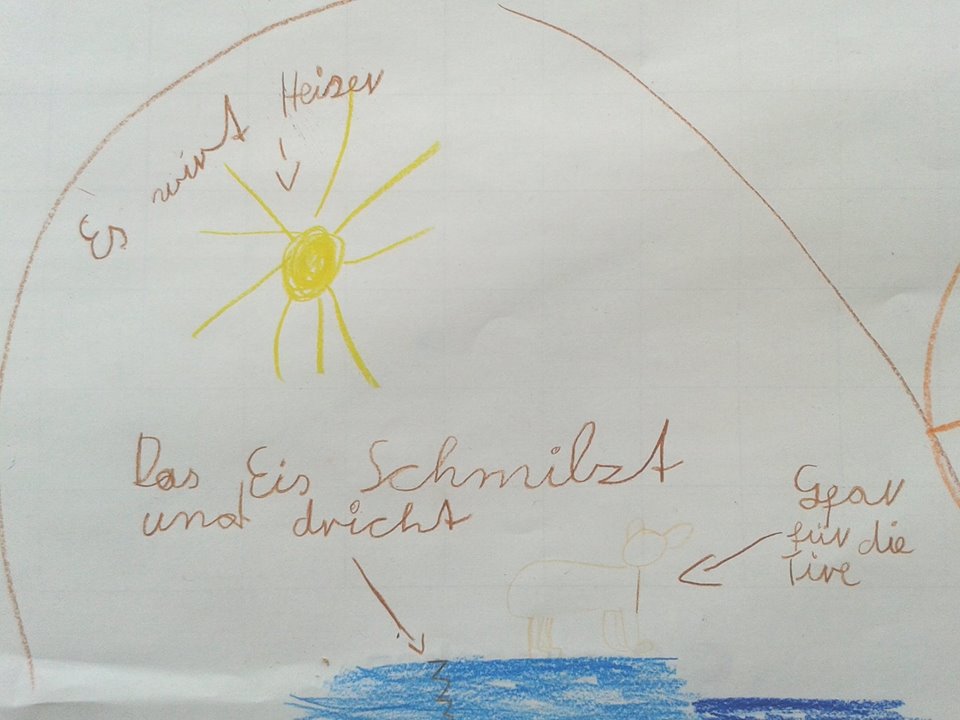 Es wirt Heiser
Das Eis Schmilzt
und dricht
Gfar
für die
Tire